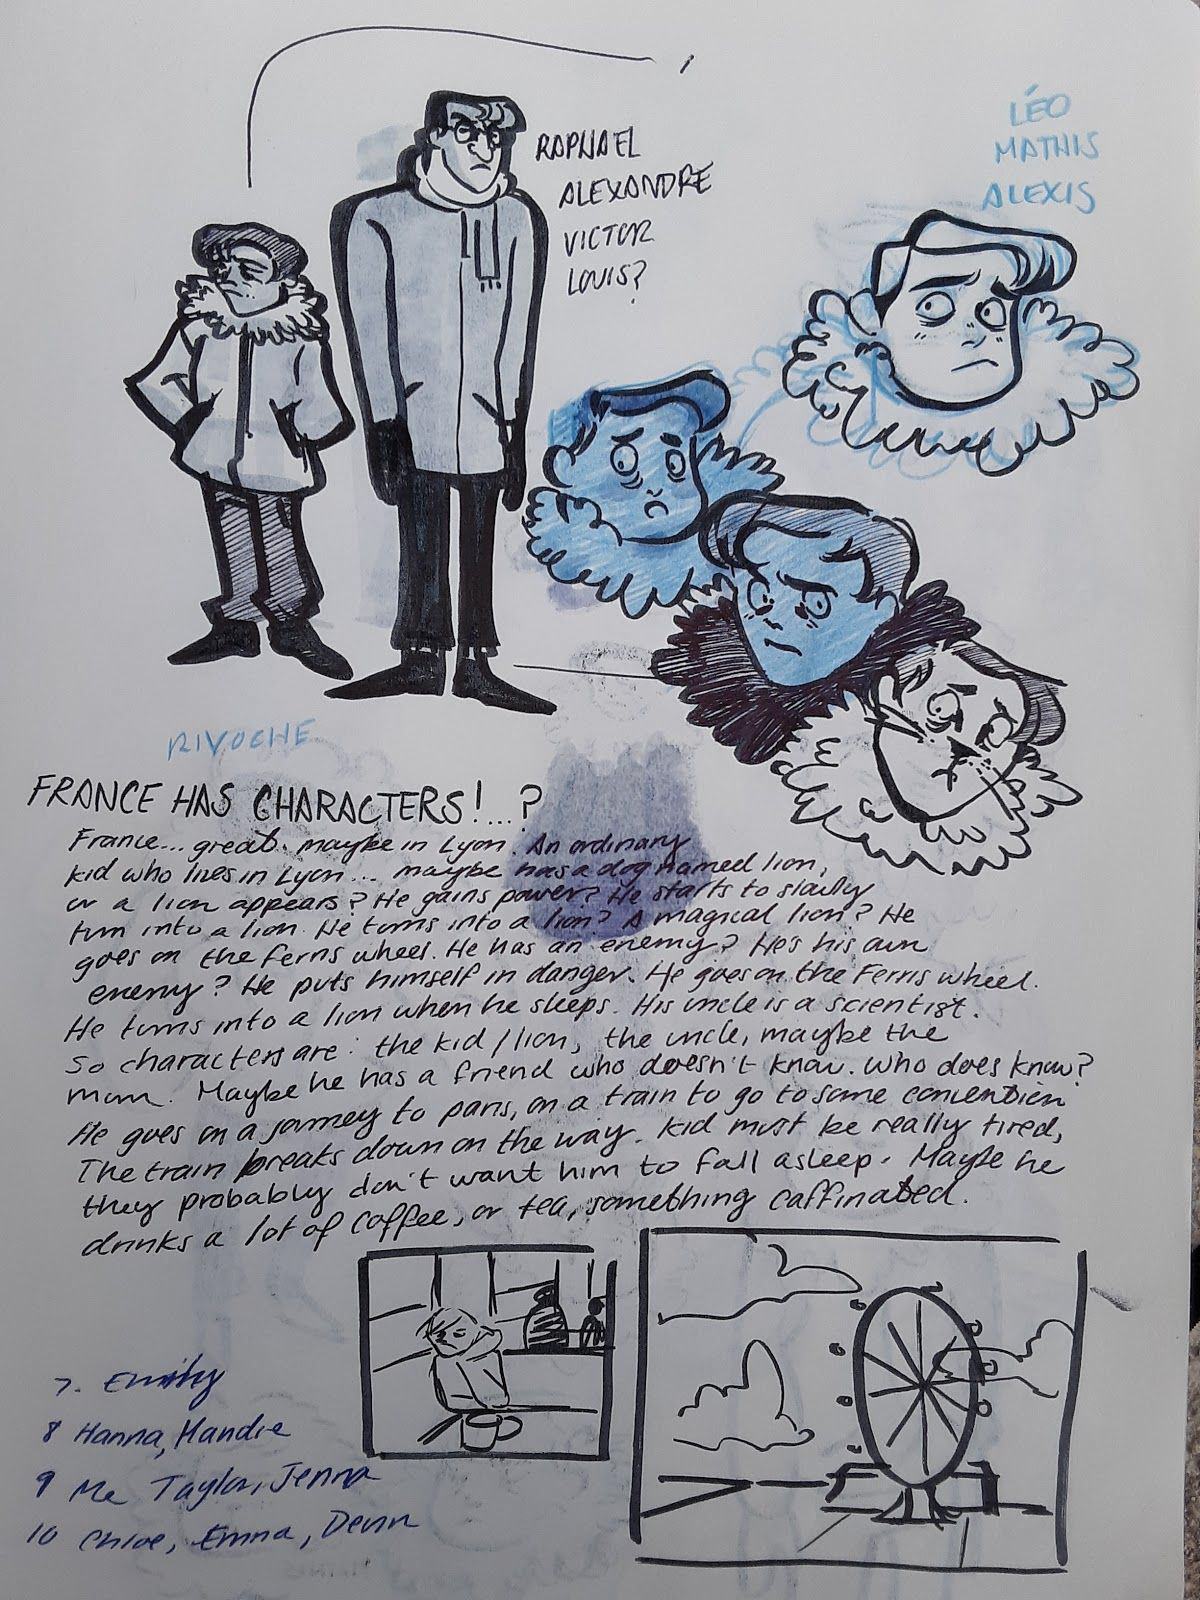 RAPHAEL
ALEXANDRE
VICTOR
LOUIS?
LÉO
MATHIS
ALEXIS
RIVOCHE
FRANCE HAS CHARACTERS!...?
France... great. maybe in Lyon. An ordinary
kid who lives in Lyon... maybe has a dog named lion,
or a lion appears? He gains power? He starts to slowly
turn into a lion. He turns into a lion? A magical lion? He
goes on the ferris wheel. He has an enemy? He's his own
enemy? He puts himself in danger. He goes on the Ferris wheel.
He turns into a lion when he sleeps. His uncle is a scientist.
So characters are: the kid/lion, the uncle, maybe the
mum. Maybe he has a friend who doesn't know. Who does know?
He goes on a journey to paris, on a train to go to some convention
The train breaks down on the way. Kid must be really tired,
they probably don't want him to fall asleep. Maybe he
drinks a lot of coffee, or tea, something caffinated.
7. Emily
8 Hanna, Mandie
9 Me Taylor, Jenna
10 Chloe, Emna,